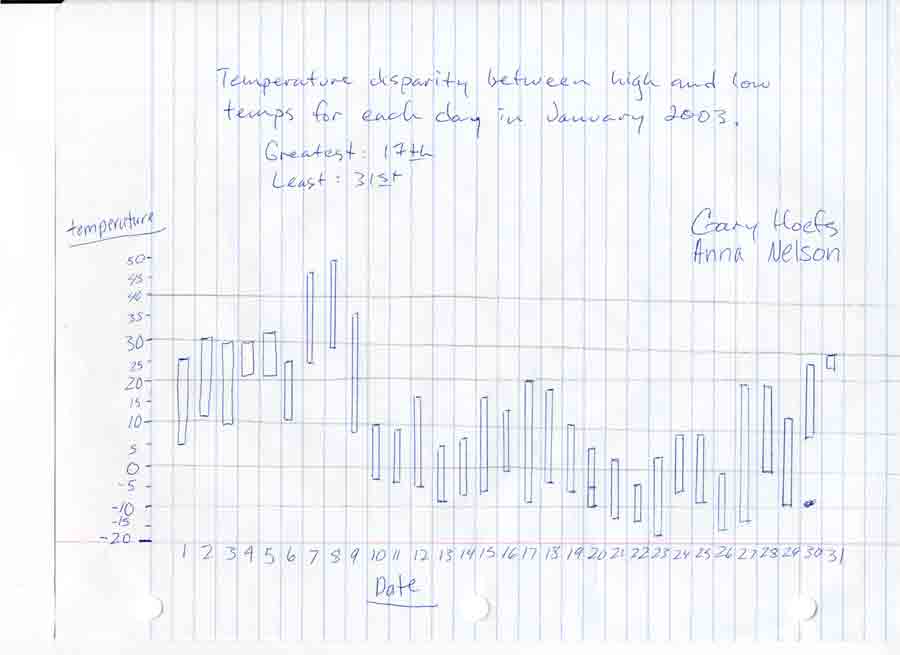 Temperature disparity between high and low
temps for each day in January 2003.
Greatest: 17th
Least: 31st
temperature
Gary Hoefs
Anna Nelson
50
45
40
35
30
25
20
15
10
5
0
-5
-10
-15
-20
1 2 3 4 5 6 7 8 9 10 11 12 13 14 15 16 17 18 19 20 21 22 23 24 25 26 27 28 29 30 31
Date